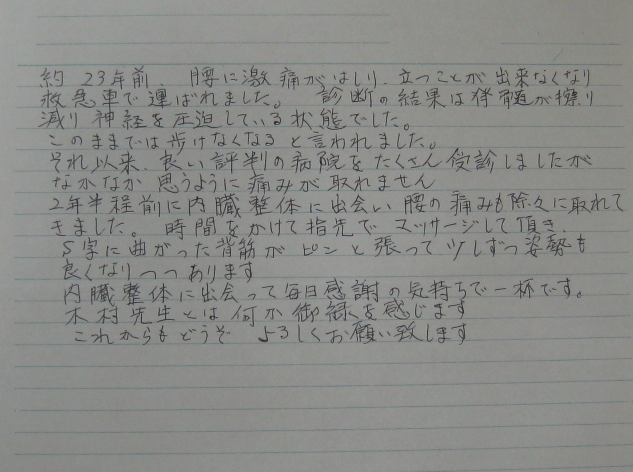 約 23年前、腰に激痛がはしり、立つことが出来なくなり
救急車で運ばれました。 診断の結果は脊髄が擦り
減り神経を圧迫している状態でした。
このままでは歩けなくなると言われました。
それ以来、良い評判の病院をたくさん受診しましたが
なかなか思うように痛みが取れません
2年半程前に内臓整体に出会い腰の痛みも除々に取れて
きました。 時間をかけて指先でマッサージして頂き、
S字に曲がった背筋がピンと張って少しずつ姿勢も
良くなりつつあります
内臓整体に出会って毎日感謝の気持ちで一杯です。
木村先生とは何か御縁を感じます
これからもどうぞ よろしくお願い致します